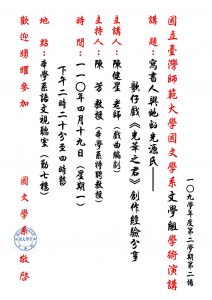 一○九學年度第二學期第二場
國立臺灣師範大學國文學系文學組學術演講
講題：寫書人與她的光源氏——
歌仔戲《光華之君》創作經驗分享
主講人：陳健星 老師（戲曲編劇）
主持人：陳 芳 教授（本學系特聘教授）
時間：一一○年四月十九日（星期一）
下午二時二十分至四時整
地點：本學系語文視聽室（勤七樓）
歡迎踴躍參加
國文學系 敬啓